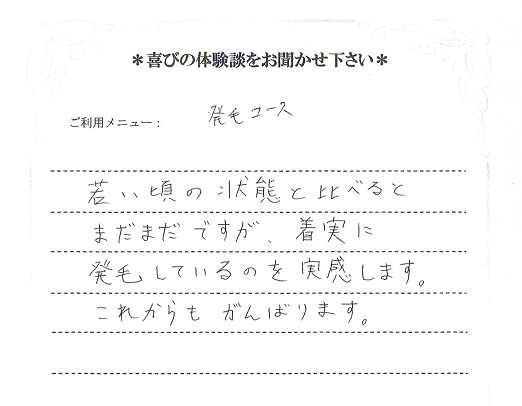 ＊喜びの体験談をお聞かせ下さい＊
ご利用メニュー： 発毛コース
若い頃の状態と比べると
まだまだですが、着実に
発毛しているのを実感します。
これからもがんばります。